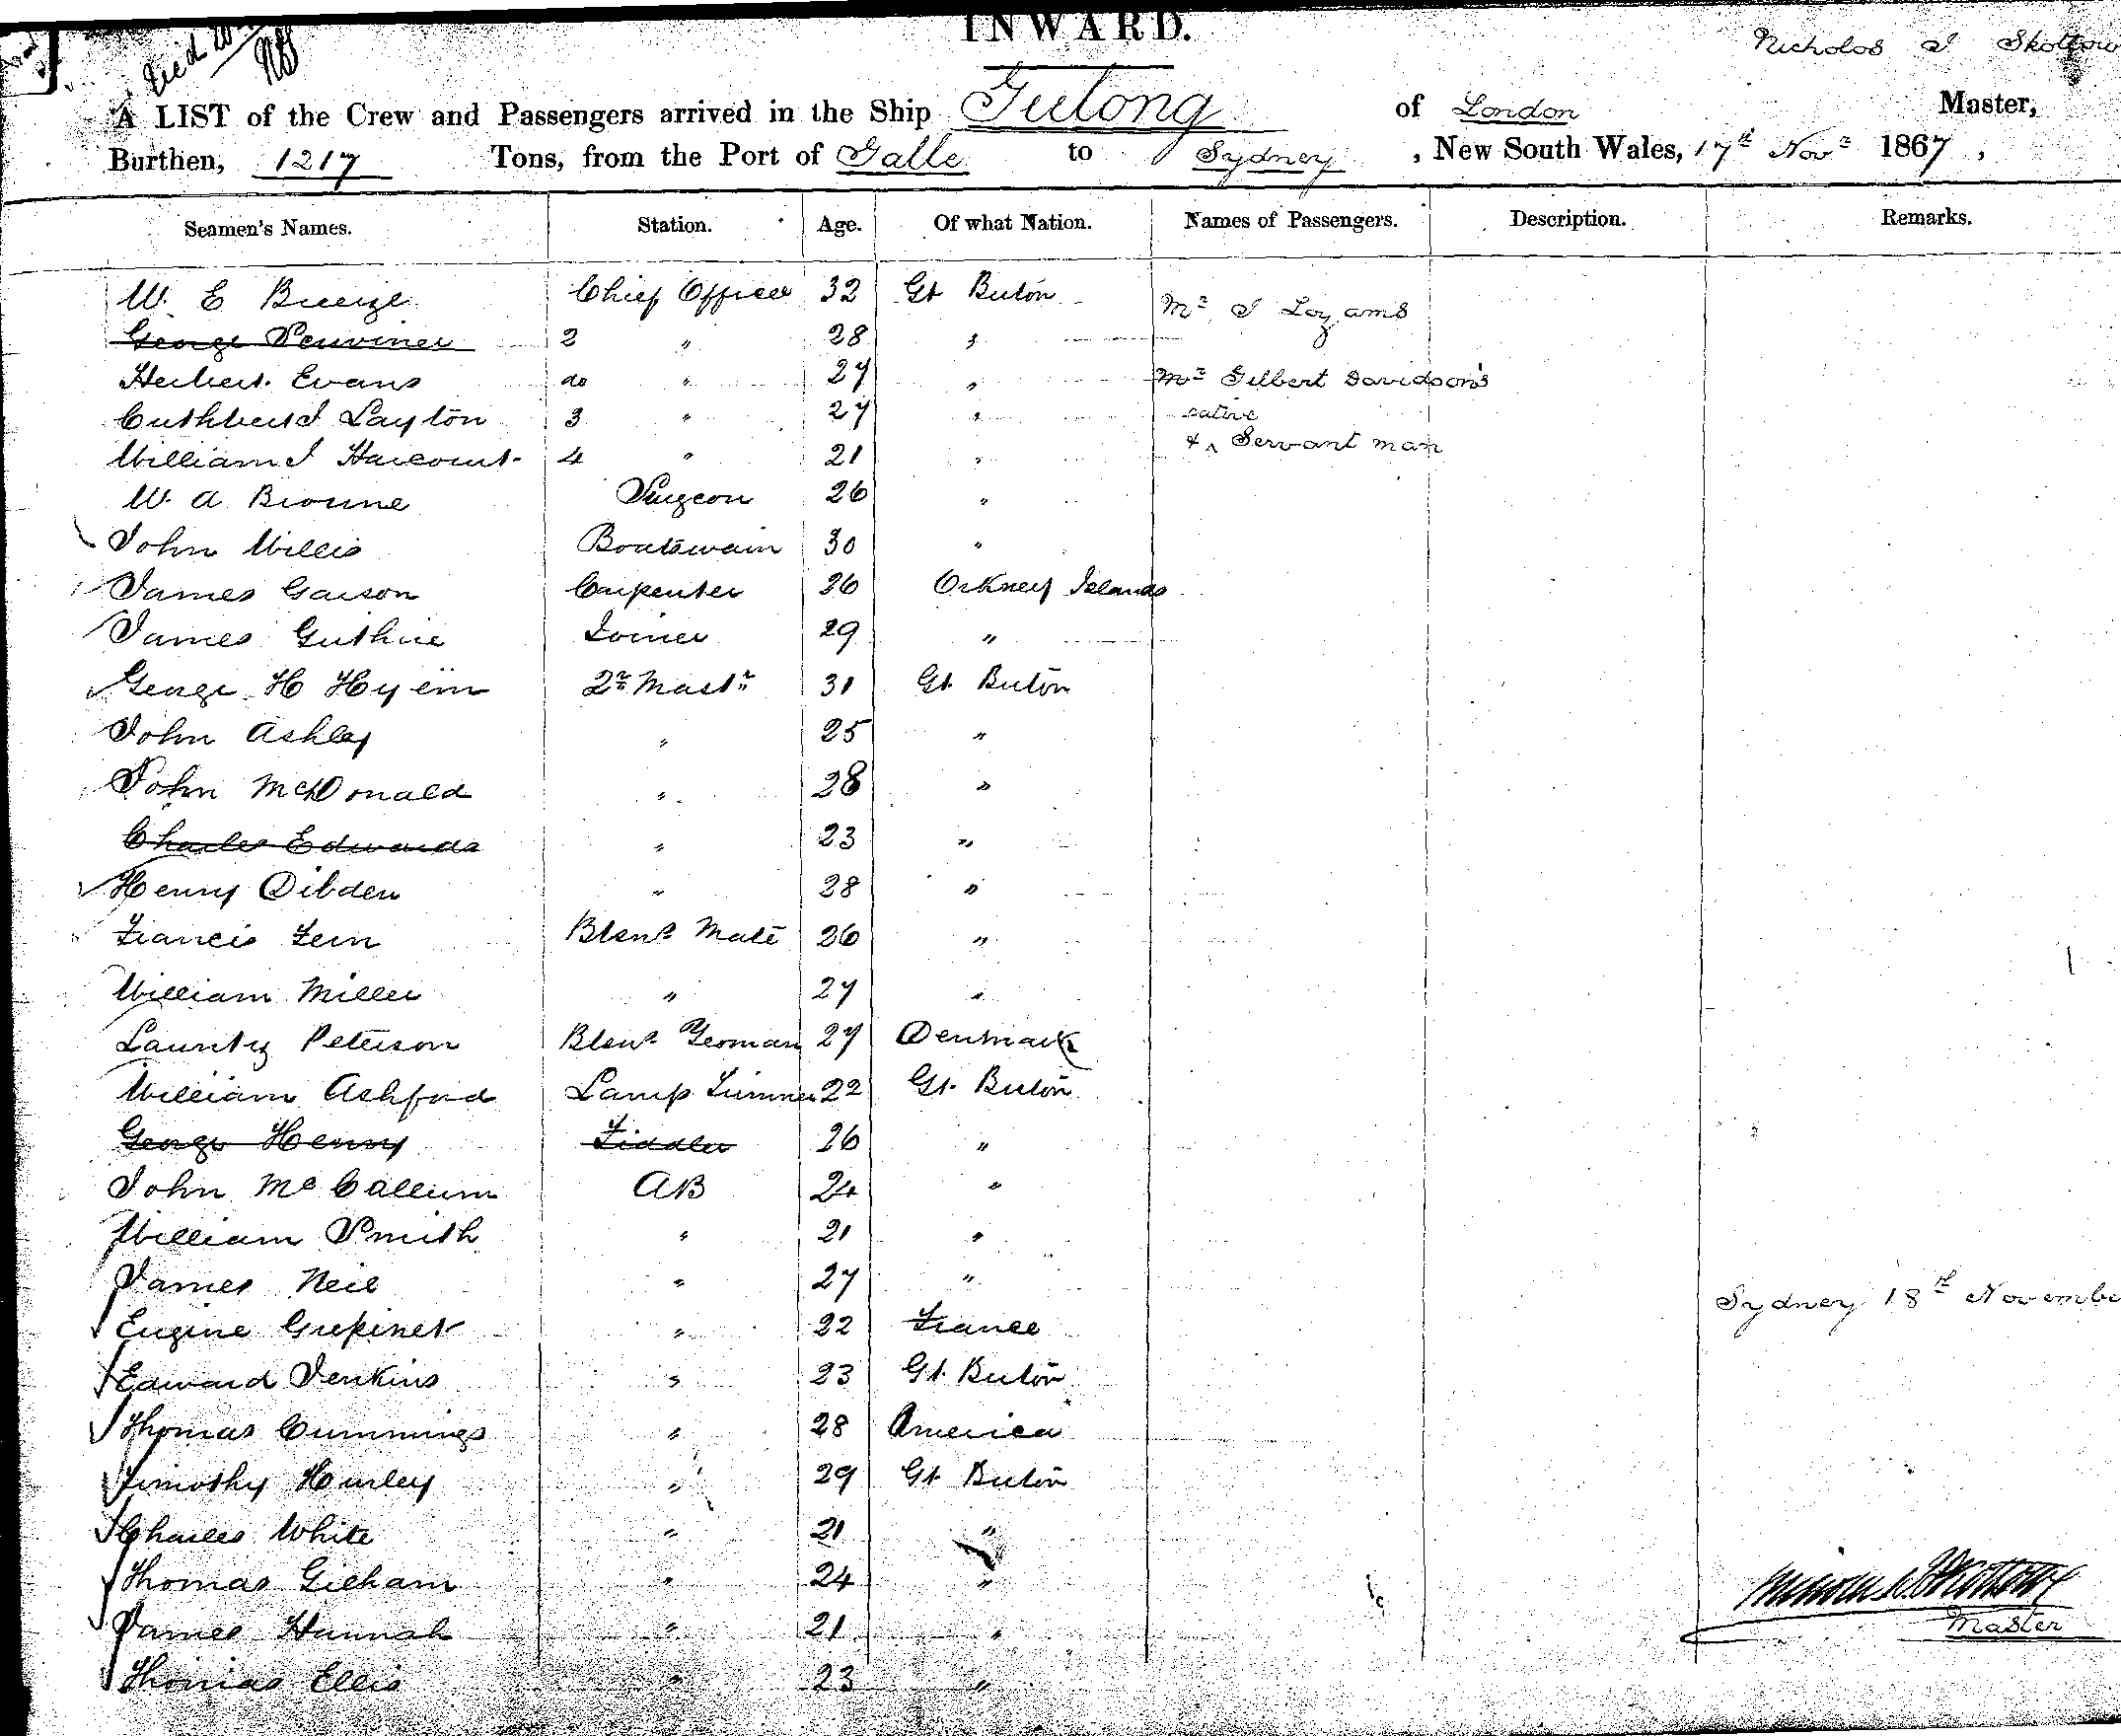 INWARD.
Nicholas
A LIST of the Crew and Passengers arrived in the Ship Gulong of London Master,
Burthen, 1217 Tons, from the Port of Galle to Sydney, New South Wales, 17th Novr 1867,
Seamen's Names. Station. Age. Of what Nation. Names of Passengers. Description. Remarks.
W. E Breeze Chief Officer 32 Gt Britn Mr
George 2 " 28 "
Herbert Evans do " 27 " Mr Gilbert Davidson's
Cuthbert J Layton 3 " 27 " native
William J Harcourt 4 " 21 " & Servant man
W. A Browne Surgeon 26 "
John Willis Boatswain 30 "
James Garson Carpenter 26 Orkney Islands
James Guthrie Joiner 29 "
George H 2r Mastr 31 Gt Britn
John Ashley " 25 "
John McDonald " 28 "
Charles Edwards " 23 "
Henry Dibden " 28 "
Francis Fern Btsns Mate 26 "
William Miller " 27 "
Peterson Btsns Yeoman 27 Denmark
William Ashford Lamp Trimmer 22 Gt Britn
George Henry Fiddler 26 "
John McCallum AB 24 "
William Smith " 21 "
James Neil " 27 "
Sydney 18th Novembe
Eugine " 22 France
Edward Jenkins " 23 Gt Britn
Thomas Cummings " 28 America
Timothy Hurley " 29 Gt Britn
Charles White " 21 "
Thomas Gilham " 24 "
James Hannah " 21 " Master
Thomas Ellis " 23 "